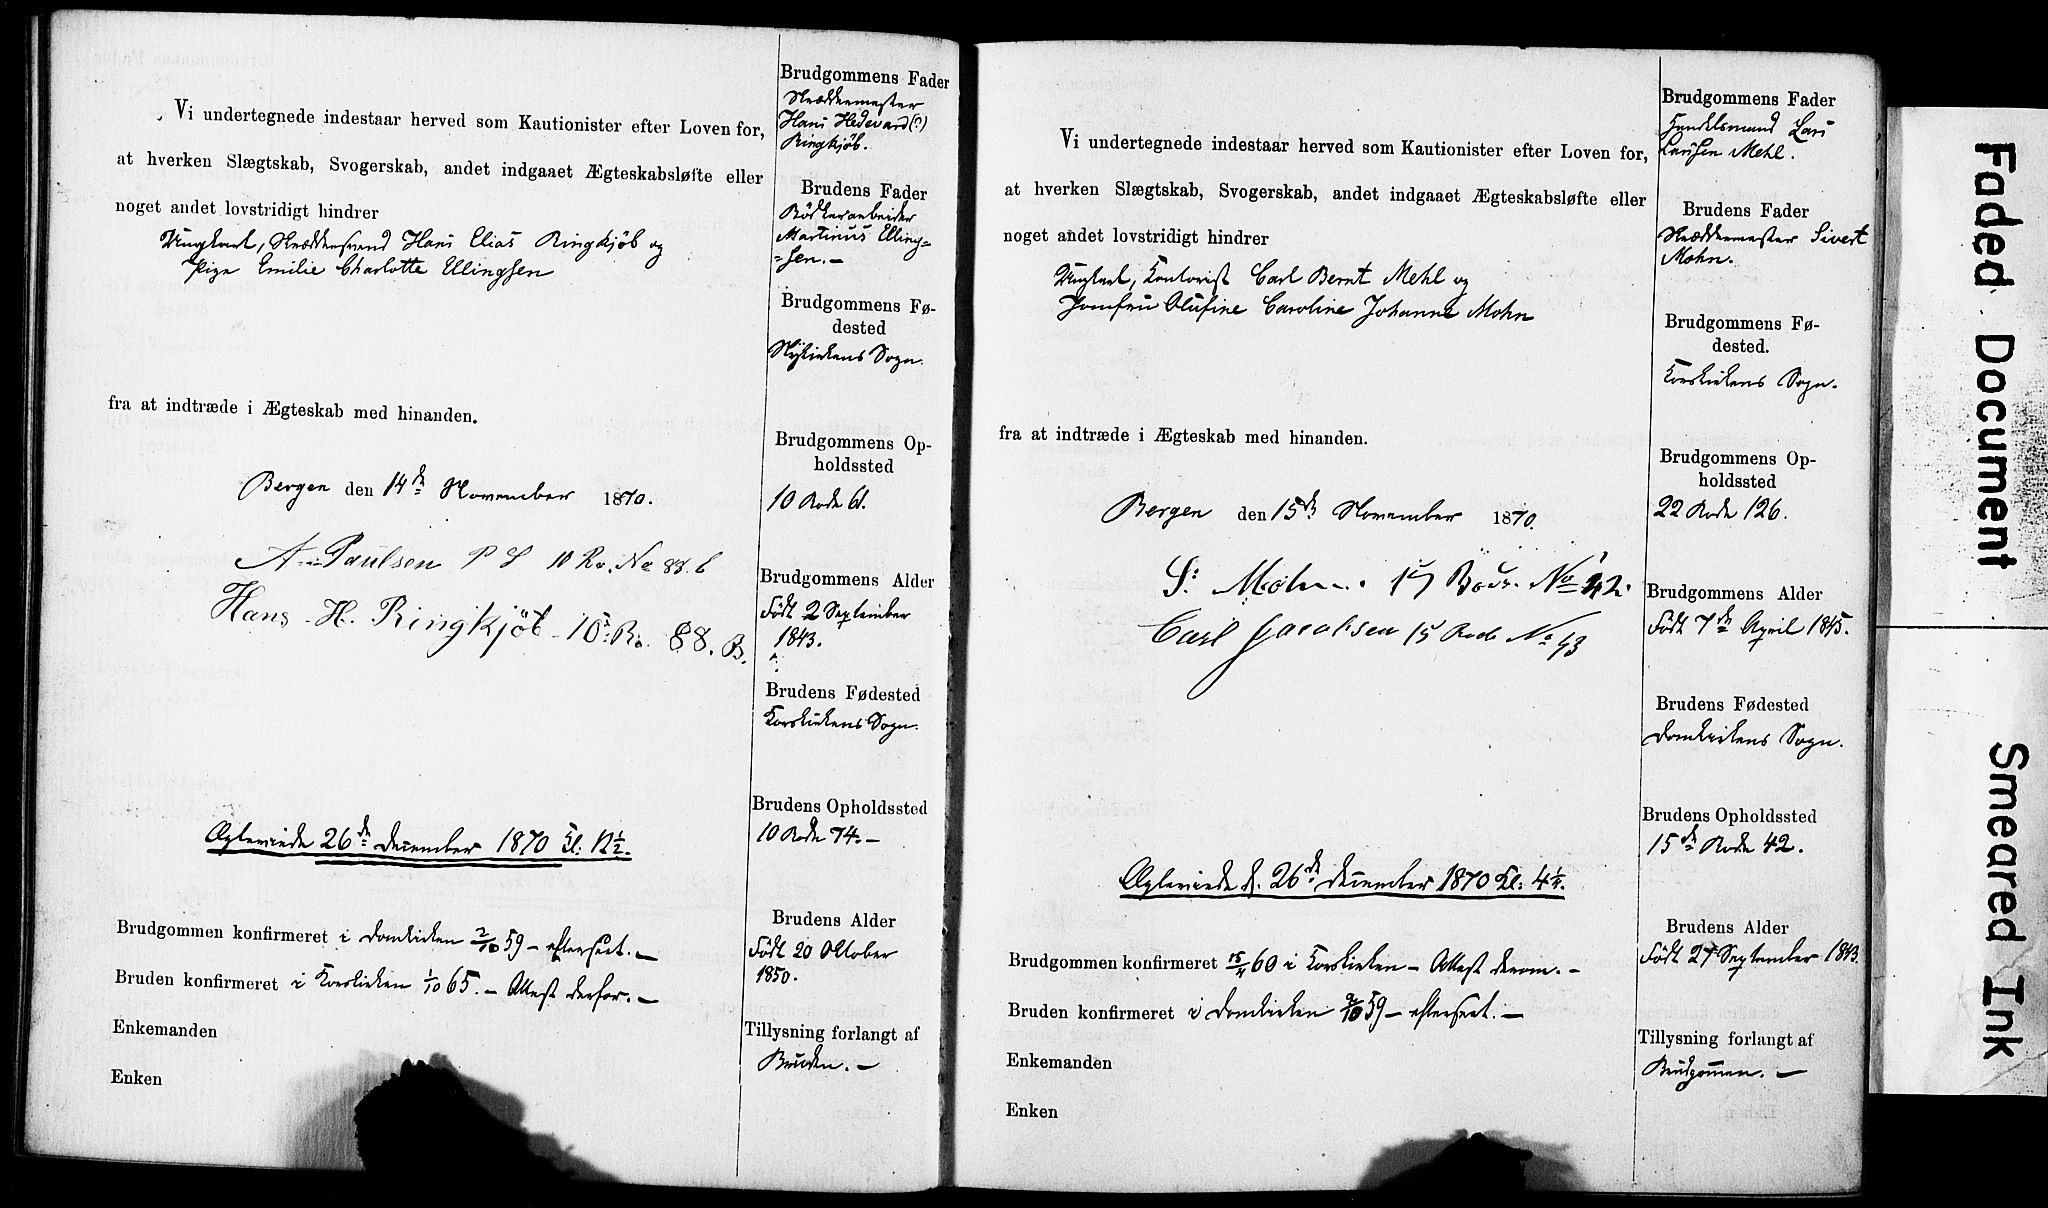 Vi undertegnede indestaar herved som Kautionister efter Loven for,
at hverken Slægtskab, Svogerskab, andet indgaaet Ægteskabsløfte eller
noget andet lovstridigt hindrer
Ungkarl, Skræddersvend Hans Elias Ringkjöb og
Pige Emilie Charlotte Ellingsen
fra at indtræde i Ægteskab med hinanden.
Bergen den 14de November 1870.
A. Paulsen P S 10 Ro. No 88. b
Hans H. Ringkjöb 10 Ro. 88. B.
Ægteviede 26de December 1870 Kl: 12½.
Brudgommen konfirmeret i Domkirken 2/10 59 – efterseet. –
Bruden konfirmeret i Korskirken 1/10 65. – Attest derfor. –
Enkemanden
Enken
Brudgommens Fader
Skræddermester
Hans Hedevard (?)
Ringkjöb.
Brudens Fader
Bödkerarbeider
Martinus Elling=
=sen. –
Brudgommens Fø-
dested
Nykirkens Sogn.
Brudgommens Op-
holdssted
10 Rode 61.
Brudgommens Alder
Födt 2 September
1843.
Brudens Fødested
Korskirkens Sogn.
Brudens Opholdssted
10 Rode 74. –
Brudens Alder
Födt 20 Oktober
1850.
Tillysning forlangt af
Bruden. –
Vi undertegnede indestaar herved som Kautionister efter Loven for,
at hverken Slægtskab, Svogerskab, andet indgaaet Ægteskabsløfte eller
noget andet lovstridigt hindrer
Ungkarl, Kontorist Carl Bernt Mehl og
Jomfru Olufine Caroline Johanne Mohn
fra at indtræde i Ægteskab med hinanden.
Bergen den 15de November 1870.
S: Mohn. 15 No 42.
Carl Jacobsen 15 Rode No 43
Ægteviede d. 26de December 1870 Kl: 4½.
Brudgommen konfirmeret 15/4 60 i Korskirken – Attest derom. –
Bruden konfirmeret i Domkirken 2/10 59 – efterseet. –
Enkemanden
Enken
Brudgommens Fader
Handelsmand Lars
Larsen Mehl.
Brudens Fader
Skræddermester Sivert
Mohn.
Brudgommens Fø-
dested.
Korskirkens Sogn.
Brudgommens Op-
holdssted
22 Rode 126.
Brudgommens Alder
Födt 7de April 1845.
Brudens Fødested
Domkirkens Sogn.
Brudens Opholdssted
15de Rode 42.
Brudens Alder
Födt 27 September 1843.
Tillysning forlangt af
Brudgommen. –
Faded Document
Smeared Ink